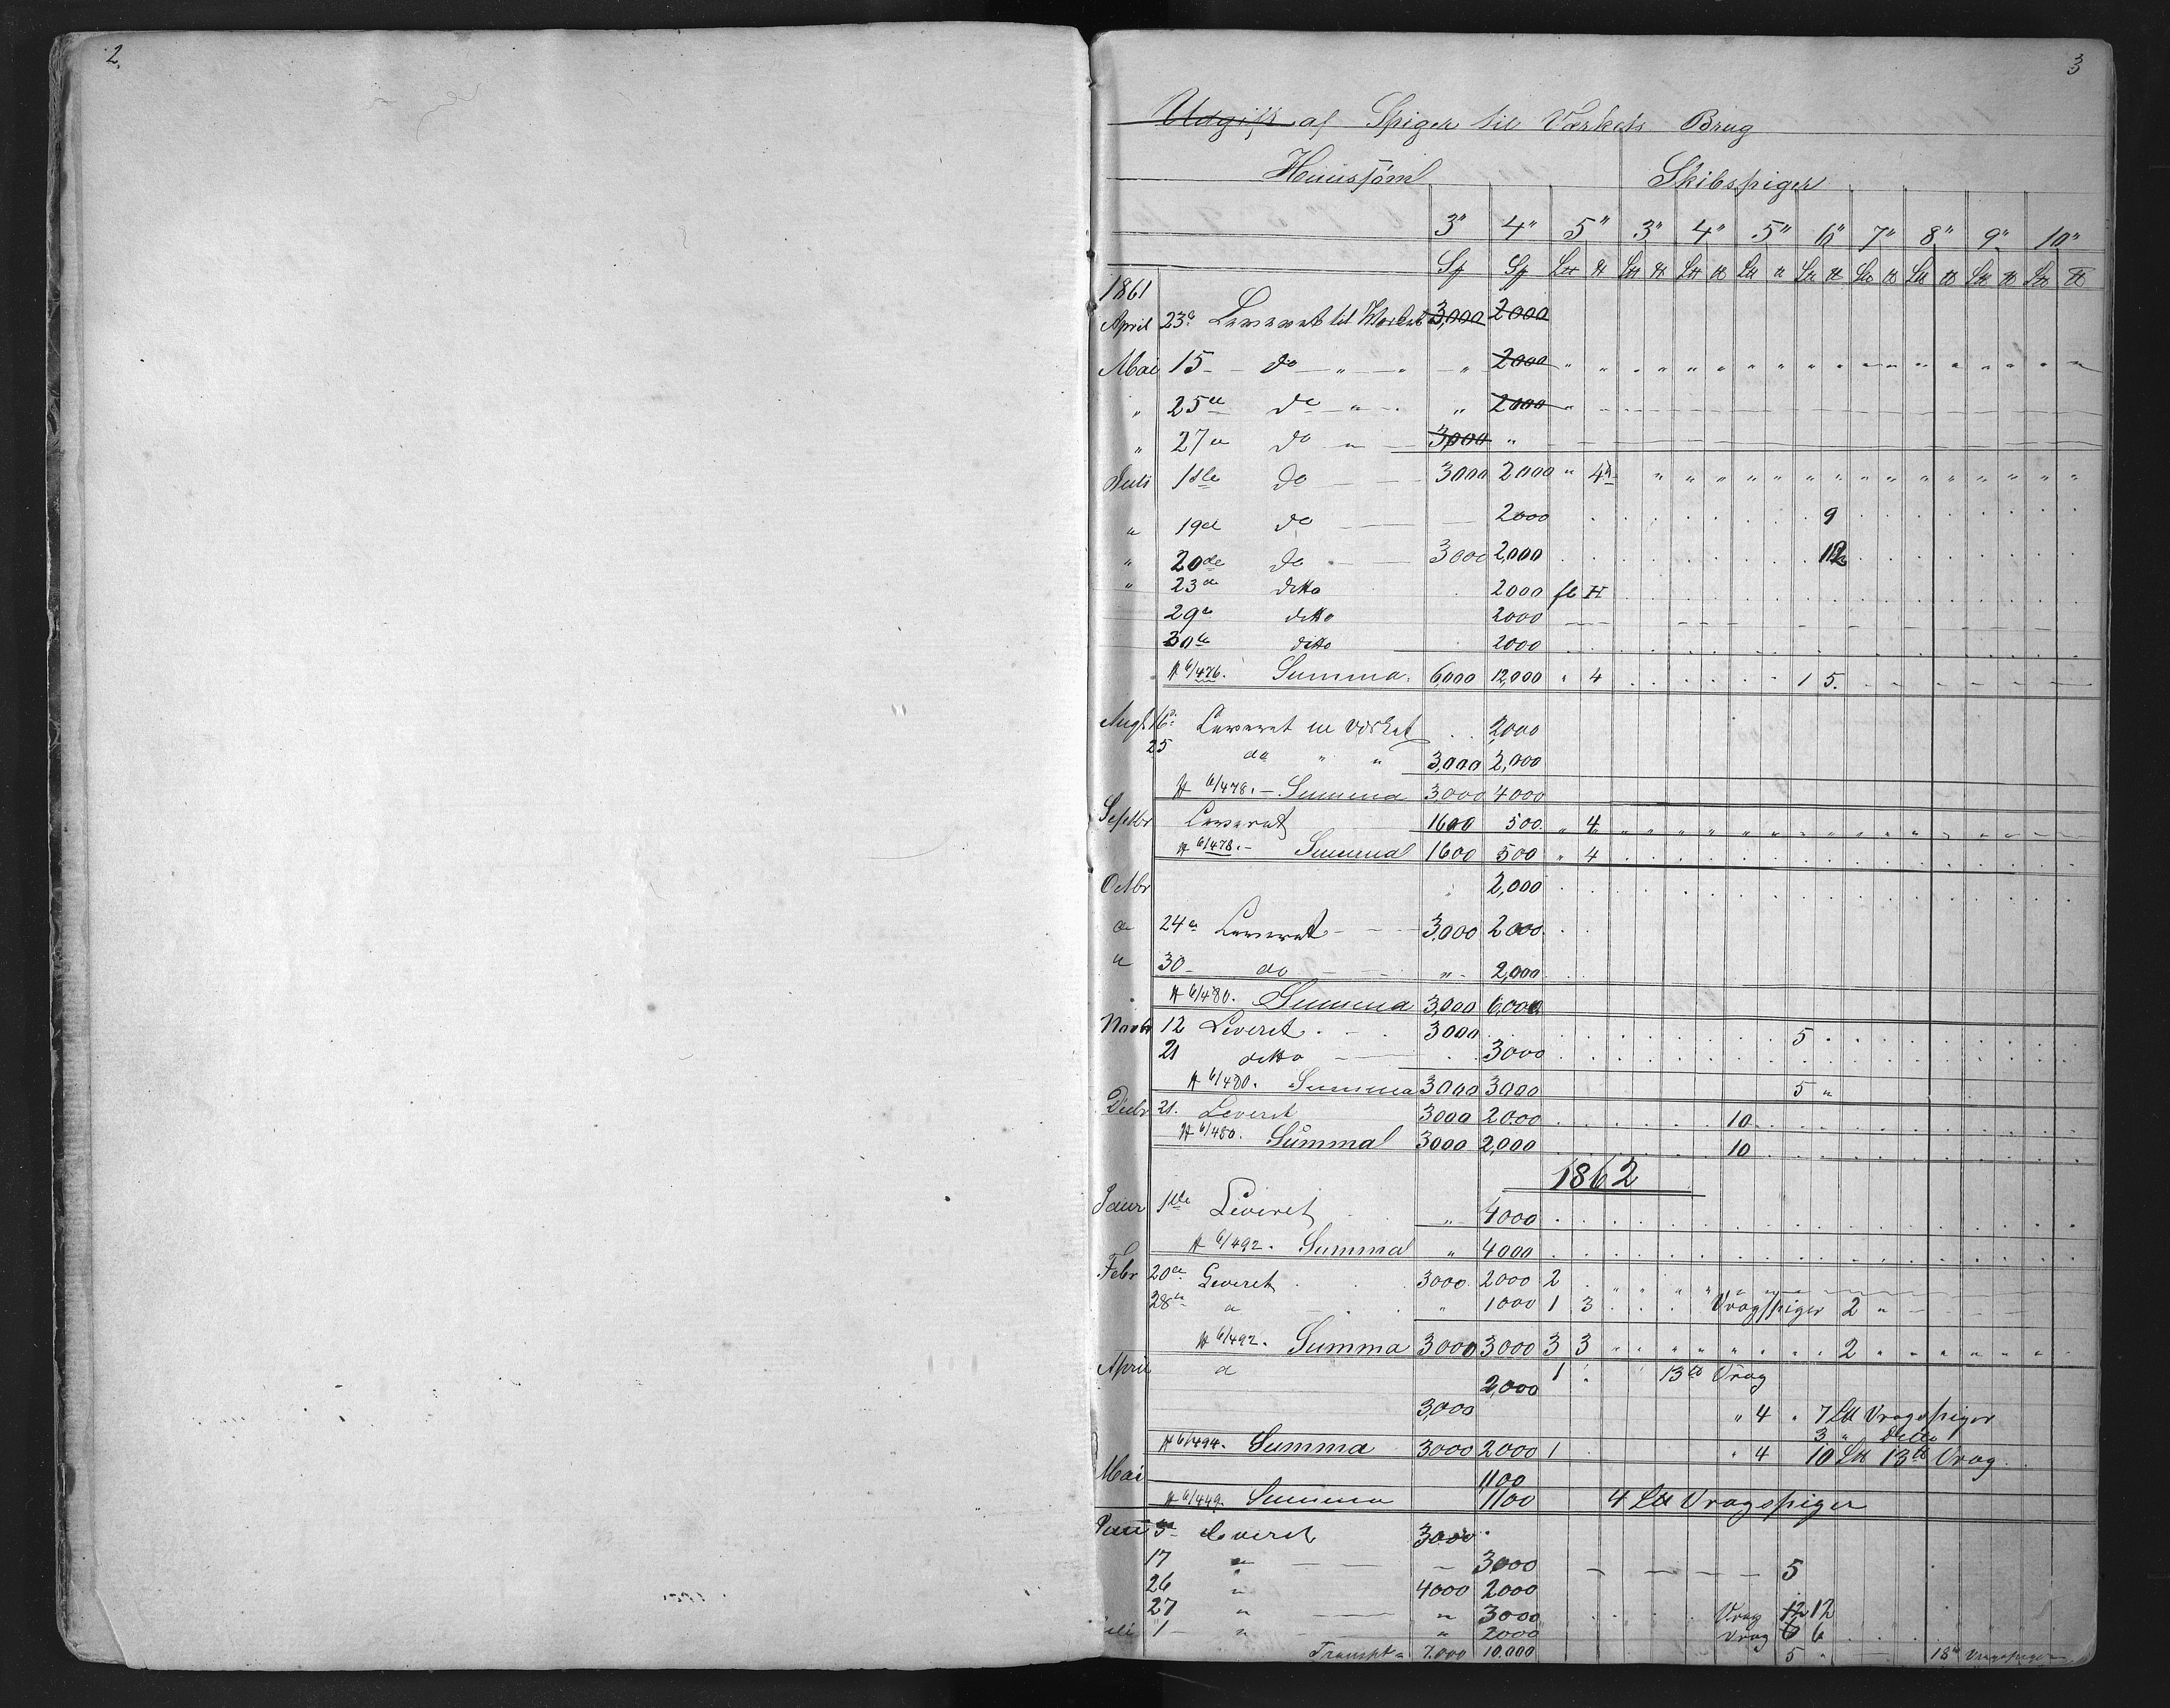 2.
3
Udgift af Spiger til Værkets Brug
Huussöm Skibspiger
3" 4" 5" 3" 4" 5" 6" 7" 8" 9" 10"
1861
April 23d Leveret til Værket 3,000 2000
Mai 15 do " " 2000 " "
" 25de do " " 2000 "
" 27de do " 3000 "
Juli 1ste do 3000 2000 " 4
" 19de do 2000 9
" 20de do 3000 2,000 12
" 23de ditto 2000
29de ditto 2000
30te ditto 2000
6/476. Summa. 6,000 12,000 " 4 1 5.
Augt 16de Leveret til Værket 2000
25 do " " 3,000 2,000
6/478. Summa 3,000 4000
Septbr Leveret 1600 500. " 4
6/478. Summa 1600 500 " 4
Octbr 2,000
" 24de Leveret 3,000 2000.
" 30 do " 2,000
6/480. Summa 3,000 6,000
Novbr 12 Leveret 3000 5
21 ditto 3000
6/480. Summa 3000 3000 5 "
Decbr 21. Leveret 3000 2000 10
6/480. Summa 3000 2,000 10
1862
Januar 1ste Leveret " 4000
6/492. Summa " 4000
Febr 20de Leveret 3000 2000 2
28de " " 1000 1 3 Vragspiger 2 "
6/492. Summa 3000 3000 3 3 2
April d 2,000 1 13 ℔ Vrag
3,000 " 4 " 7 L℔ Vragspiger
3 " Ditto
6/494. Summa 3000 2000 1 " 4 10 L℔ 13 ℔ Vrag
Mai 1100
6/449. Summa 1100 4 L℔ Vragspiger
Juni 3 Leveret 3000
17 " 3000 5
26 " 4000 2000
27 " " 3000 Vrag 12 12
Juli 1 " " 2000 Vrag 6 6
Transpt 7.000 10.000 5 18 Vragspiger